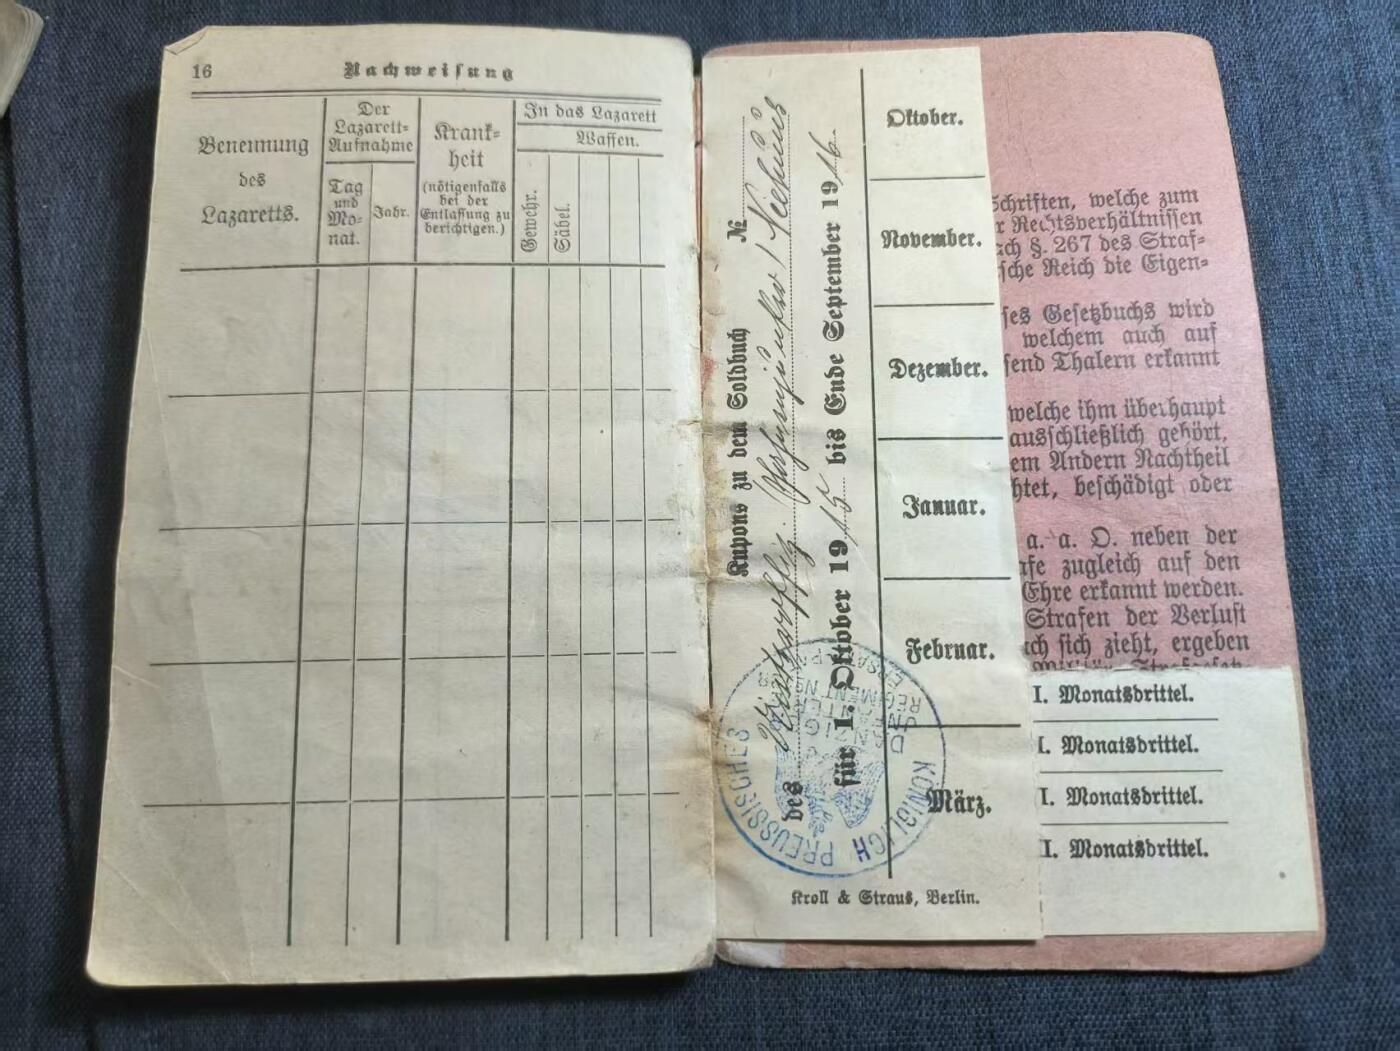 16
Nachweisung
Benennung
des
Lazaretts.
Der
Lazarett-
Aufnahme
Tag
und
Mo-
nat.
Jahr.
Krank-
heit
(nötigenfalls
bei der
Entlassung zu
berichtigen.)
In das Lazarett
Waffen.
Gewehr.
Säbel.
Kupons zu dem Soldbuch №
des
für 1. Oktober 1915 bis Ende September 1916
Oktober.
November.
Dezember.
Januar.
Februar.
März.
KÖNIGLICH PREUSSISCHES
REGIMENT
Kroll & Straus, Berlin.
Schriften, welche zum
r Rechtsverhältnissen
ach §. 267 des Straf-
sche Reich die Eigen-
ses Gesetzbuchs wird
welchem auch auf
send Thalern erkannt
welche ihm überhaupt
ausschließlich gehört,
em Andern Nachtheil
htet, beschädigt oder
a. a. O. neben der
afe zugleich auf den
Ehre erkannt werden.
Strafen der Verlust
ach sich zieht, ergeben
I. Monatsdrittel.
I. Monatsdrittel.
I. Monatsdrittel.
I. Monatsdrittel.